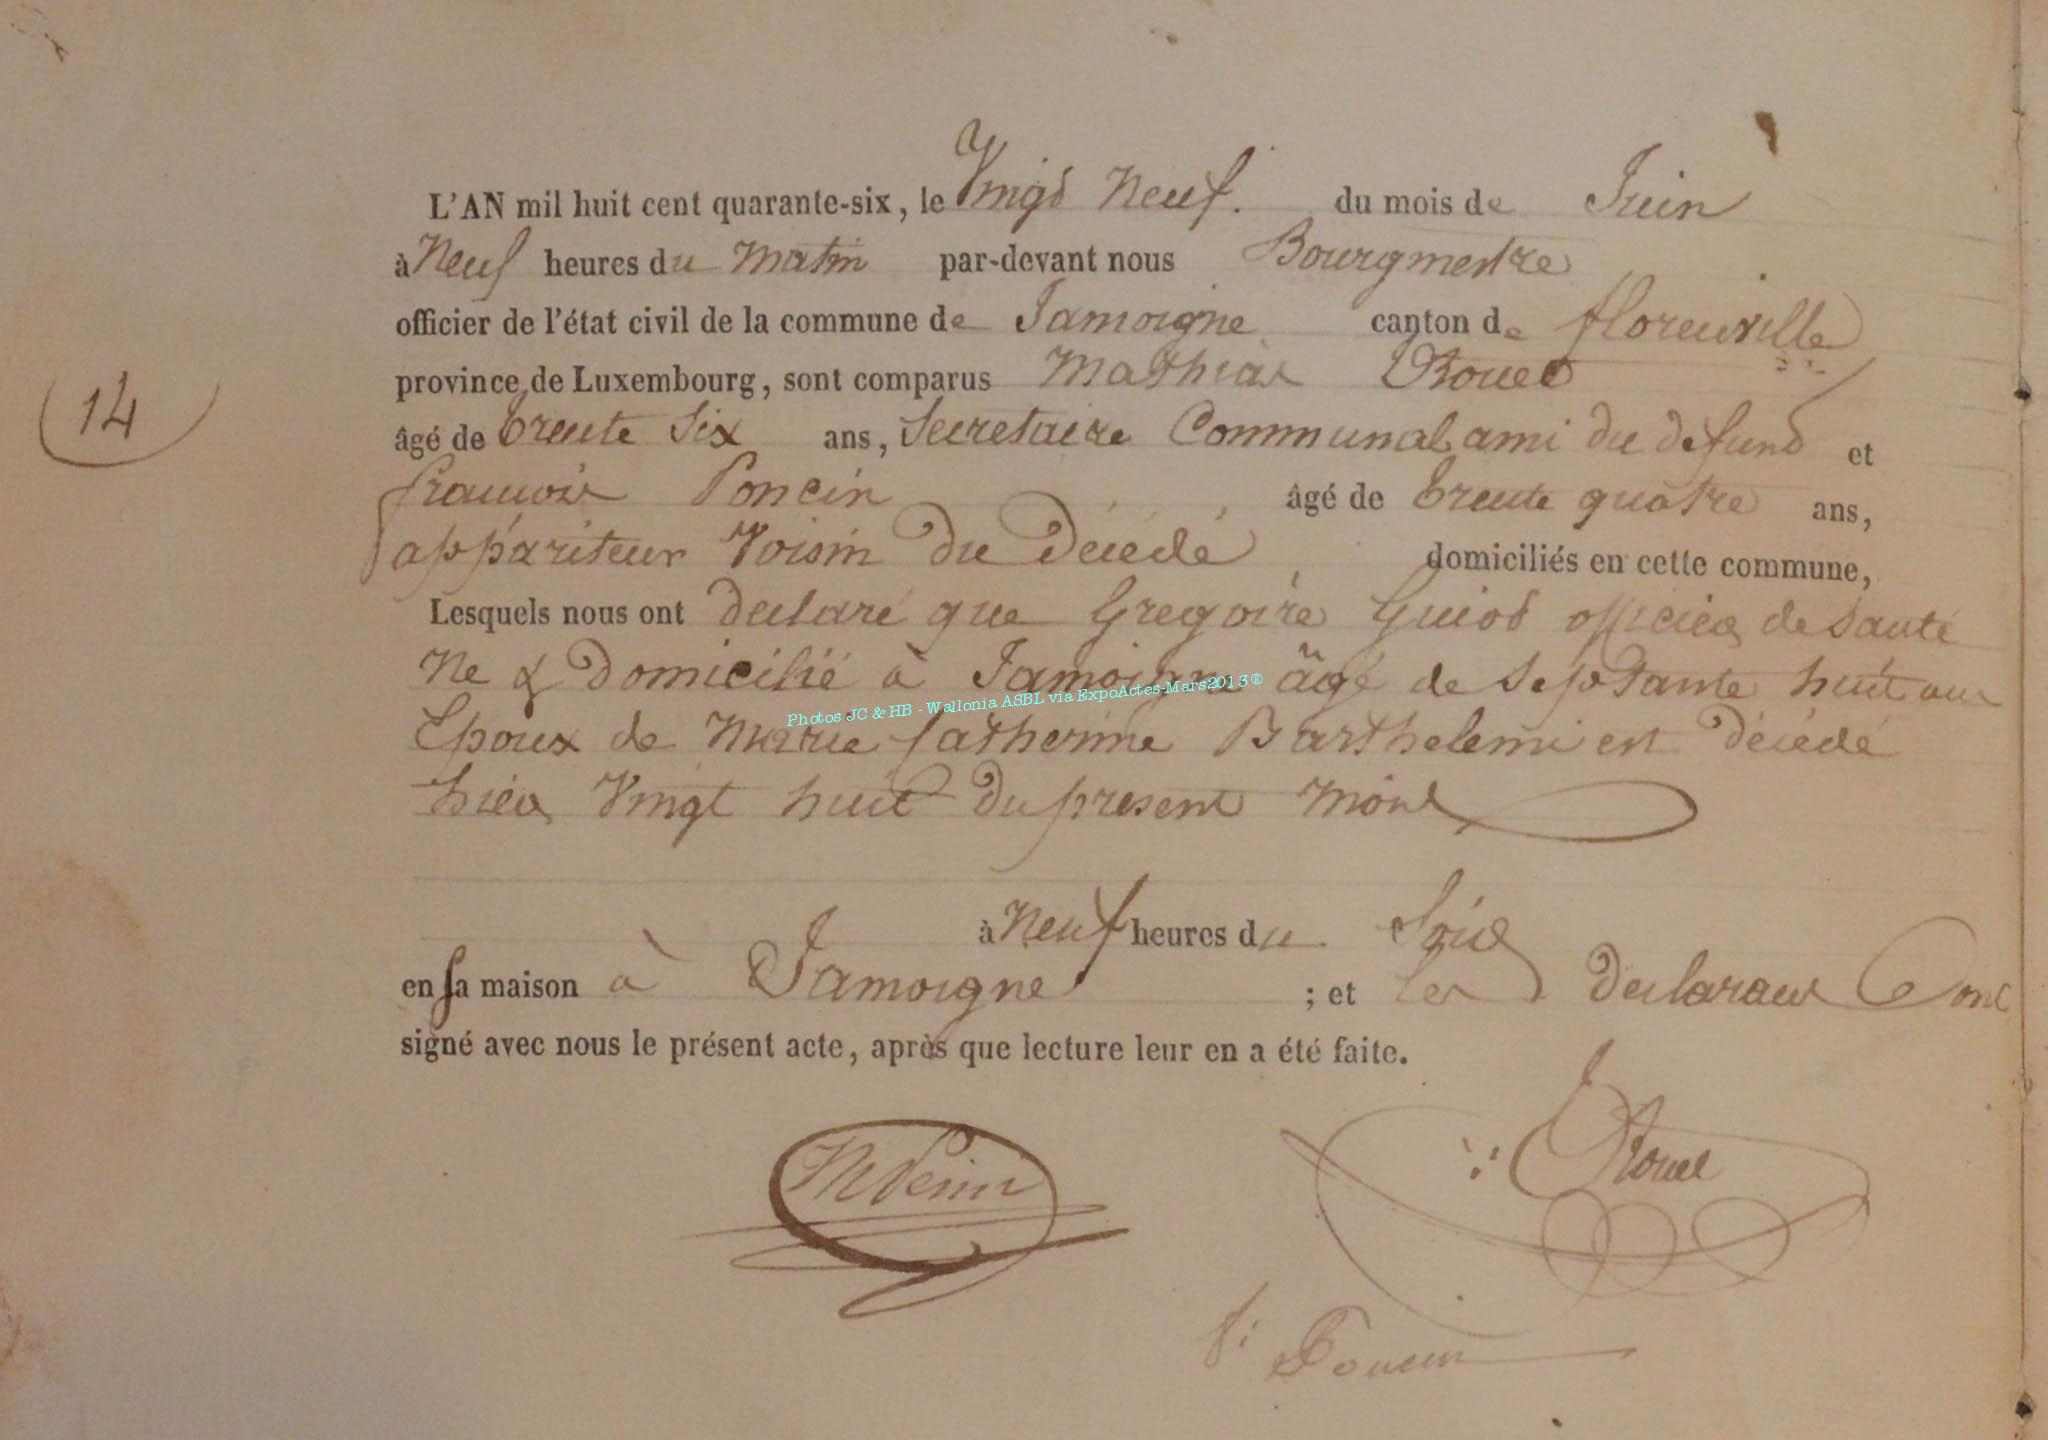 L'AN mil huit cent quarante-six, le Vingt Neuf. du mois de Juin
à Neuf heures du Matin par-devant nous Bourgmestre
officier de l'état civil de la commune de Jamoigne canton de florenville
province de Luxembourg, sont comparus Mathias Rouet
14
âgé de trente Six ans, Secretaire Communal ami du defund et
francois Poncin âgé de trente quatre ans,
appariteur Voisin du Décédé domiciliés en cette commune,
Lesquels nous ont declaré que Gregoire Guiot officier de Santé
Né & Domicilié à Jamoigne âgé de Septante huit ans
Photos JC & HB - Wallonia ASBL via ExpoActes-Mars2013®
Epoux de Marie Catherine Barthelemi est Décédé
hier Vingt huit du present Mois
à Neuf heures du Soir
en sa maison à Jamoigne ; et les declarans ont
signé avec nous le présent acte, après que lecture leur en a été faite.
Rouet
f: Poncin